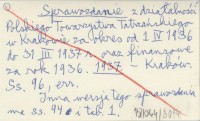 Sprawozdanie z działalności
Polskiego Towarzystwa Tatrzańskiego
w Krakowie za okres od 1 IV 1936
do 31 III 1937 r. oraz finansowe
za rok 1936. 1937 - Kraków
Ss. 96, err.
Inna wersja tego sprawozdania
ma ss. 94 i tab. 1.